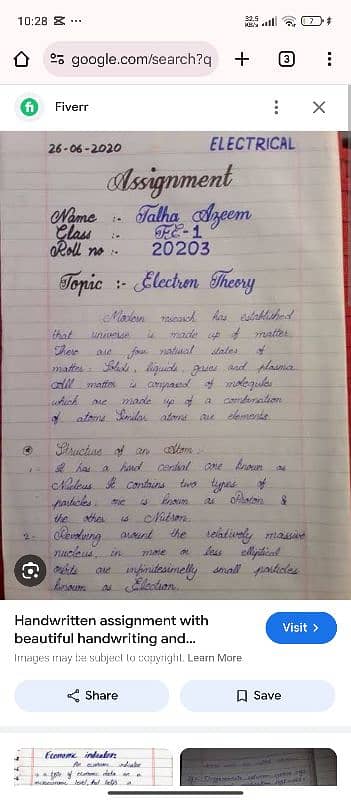 10:28
32.5
KB/s
7
google.com/search?q
3
Fiverr
26-06-2020
ELECTRICAL
Assignment
Name :- Talha Azeem
Class :- FE-1
Roll no :- 20203
Topic :- Electron Theory
Modern research has established
that universe is made up of matter.
There are four natural states of
matter. Solids, liquids, gases and plasma.
All matter is composed of molequles
which are made up of a combination
of atoms. Similar atoms are elements.
Structure of an Atom :-
1- It has a hard central core known as
Nucleus. It contains two types of
particles, one is known as Proton &
the other is Nutron.
2- Revolving around the relatively massive
nucleus, in more or less elliptical
orbits are infinitesimelly small particles
known as Electron.
Handwritten assignment with
beautiful handwriting and...
Visit
Images may be subject to copyright. Learn More
Share
Save
Economic indicators
An economic indicator
is a type of economic data on a